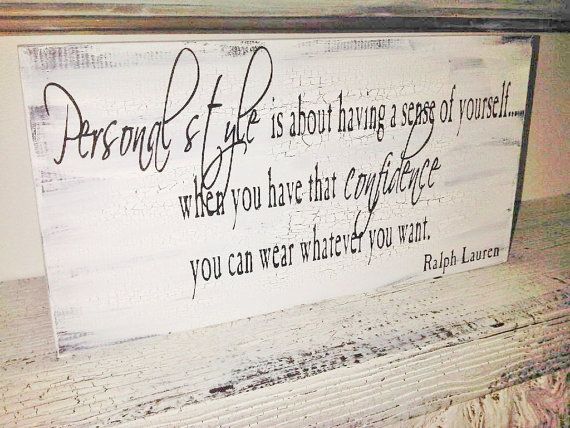 Personal style is about having a sense of yourself....
when you have that confidence
you can wear whatever you want.
Ralph Lauren